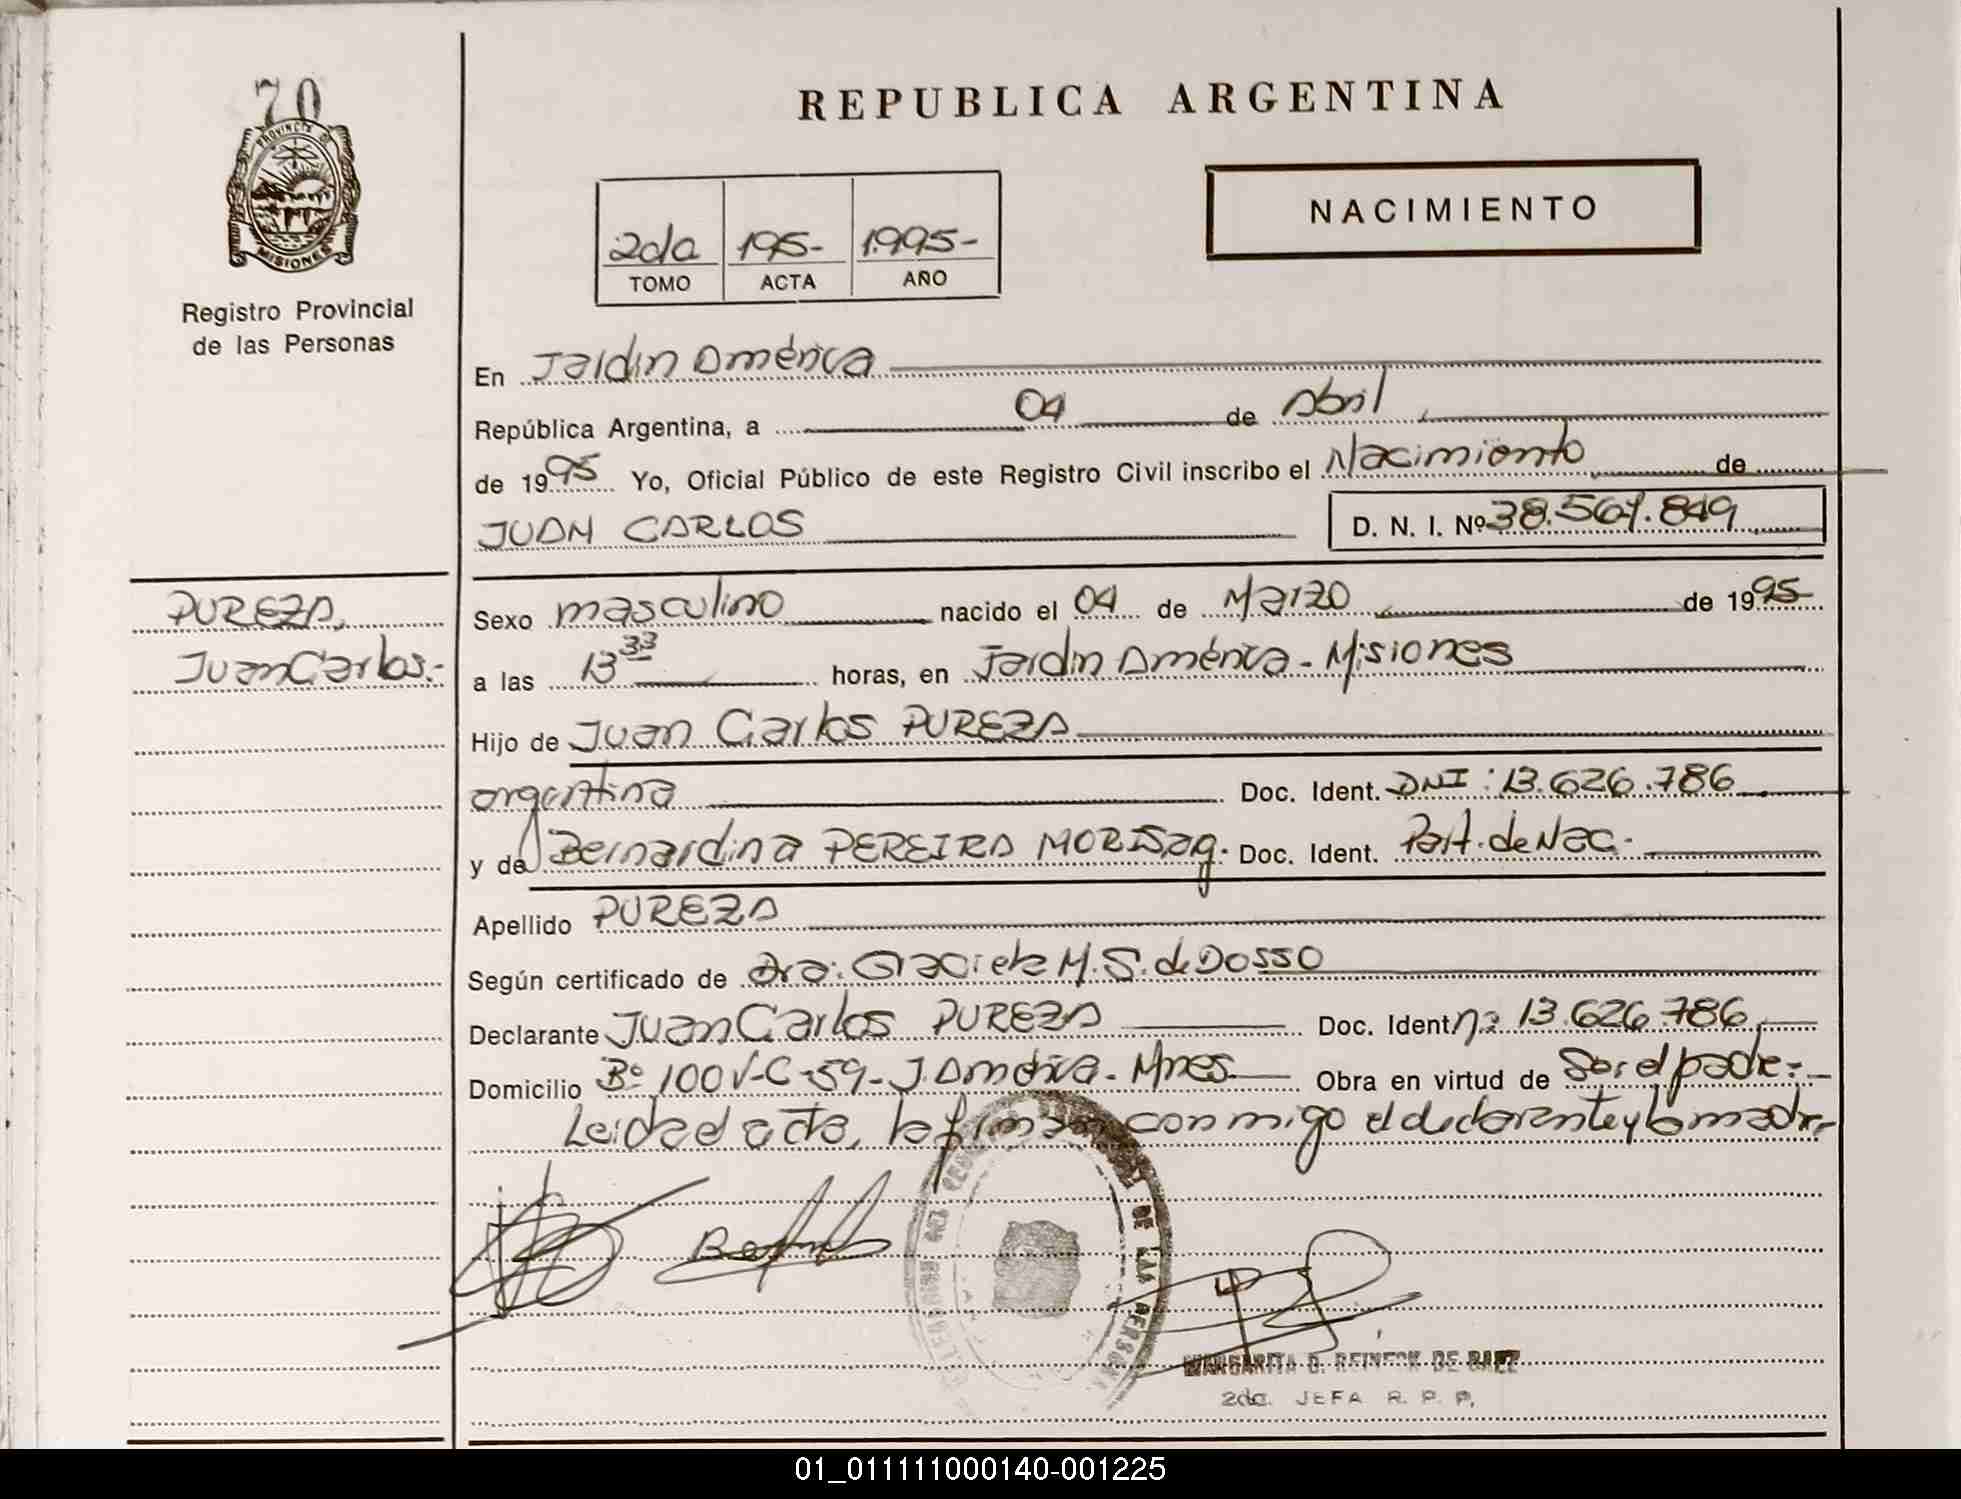 70
PROVINCIA D
MISIONES
Registro Provincial
de las Personas
REPUBLICA ARGENTINA
2da 195- 1.995-
TOMO ACTA AÑO
NACIMIENTO
En Jardin América
República Argentina, a 04 de Abril
de 1995 Yo, Oficial Público de este Registro Civil inscribo el Nacimiento de
JUAN CARLOS D. N. I. Nº 38.567.849
PUREZA,
Juan Carlos.-
Sexo masculino nacido el 04 de Marzo de 1995-
a las 13 33 horas, en Jardin América - Misiones
Hijo de Juan Carlos PUREZA
argentina Doc. Ident. DNI: 13.626.786
y de Bernardina PEREIRA Doc. Ident. Part. de Nac.-
Apellido PUREZA
Según certificado de Dra: Graciela M. S. de DOSSO
Declarante Juan Carlos PUREZA Doc. Ident nº 13.626.786
Domicilio Bº 100 V-C-59- J. América - Mnes. Obra en virtud de Ser el padre.-
Leida el acta, la firman conmigo el declarante y la madre.-
DE LAS PERSONA
MARGARITA D. REINECK DE BAEZ
2da. JEFA R. P. P.
01_011111000140-001225